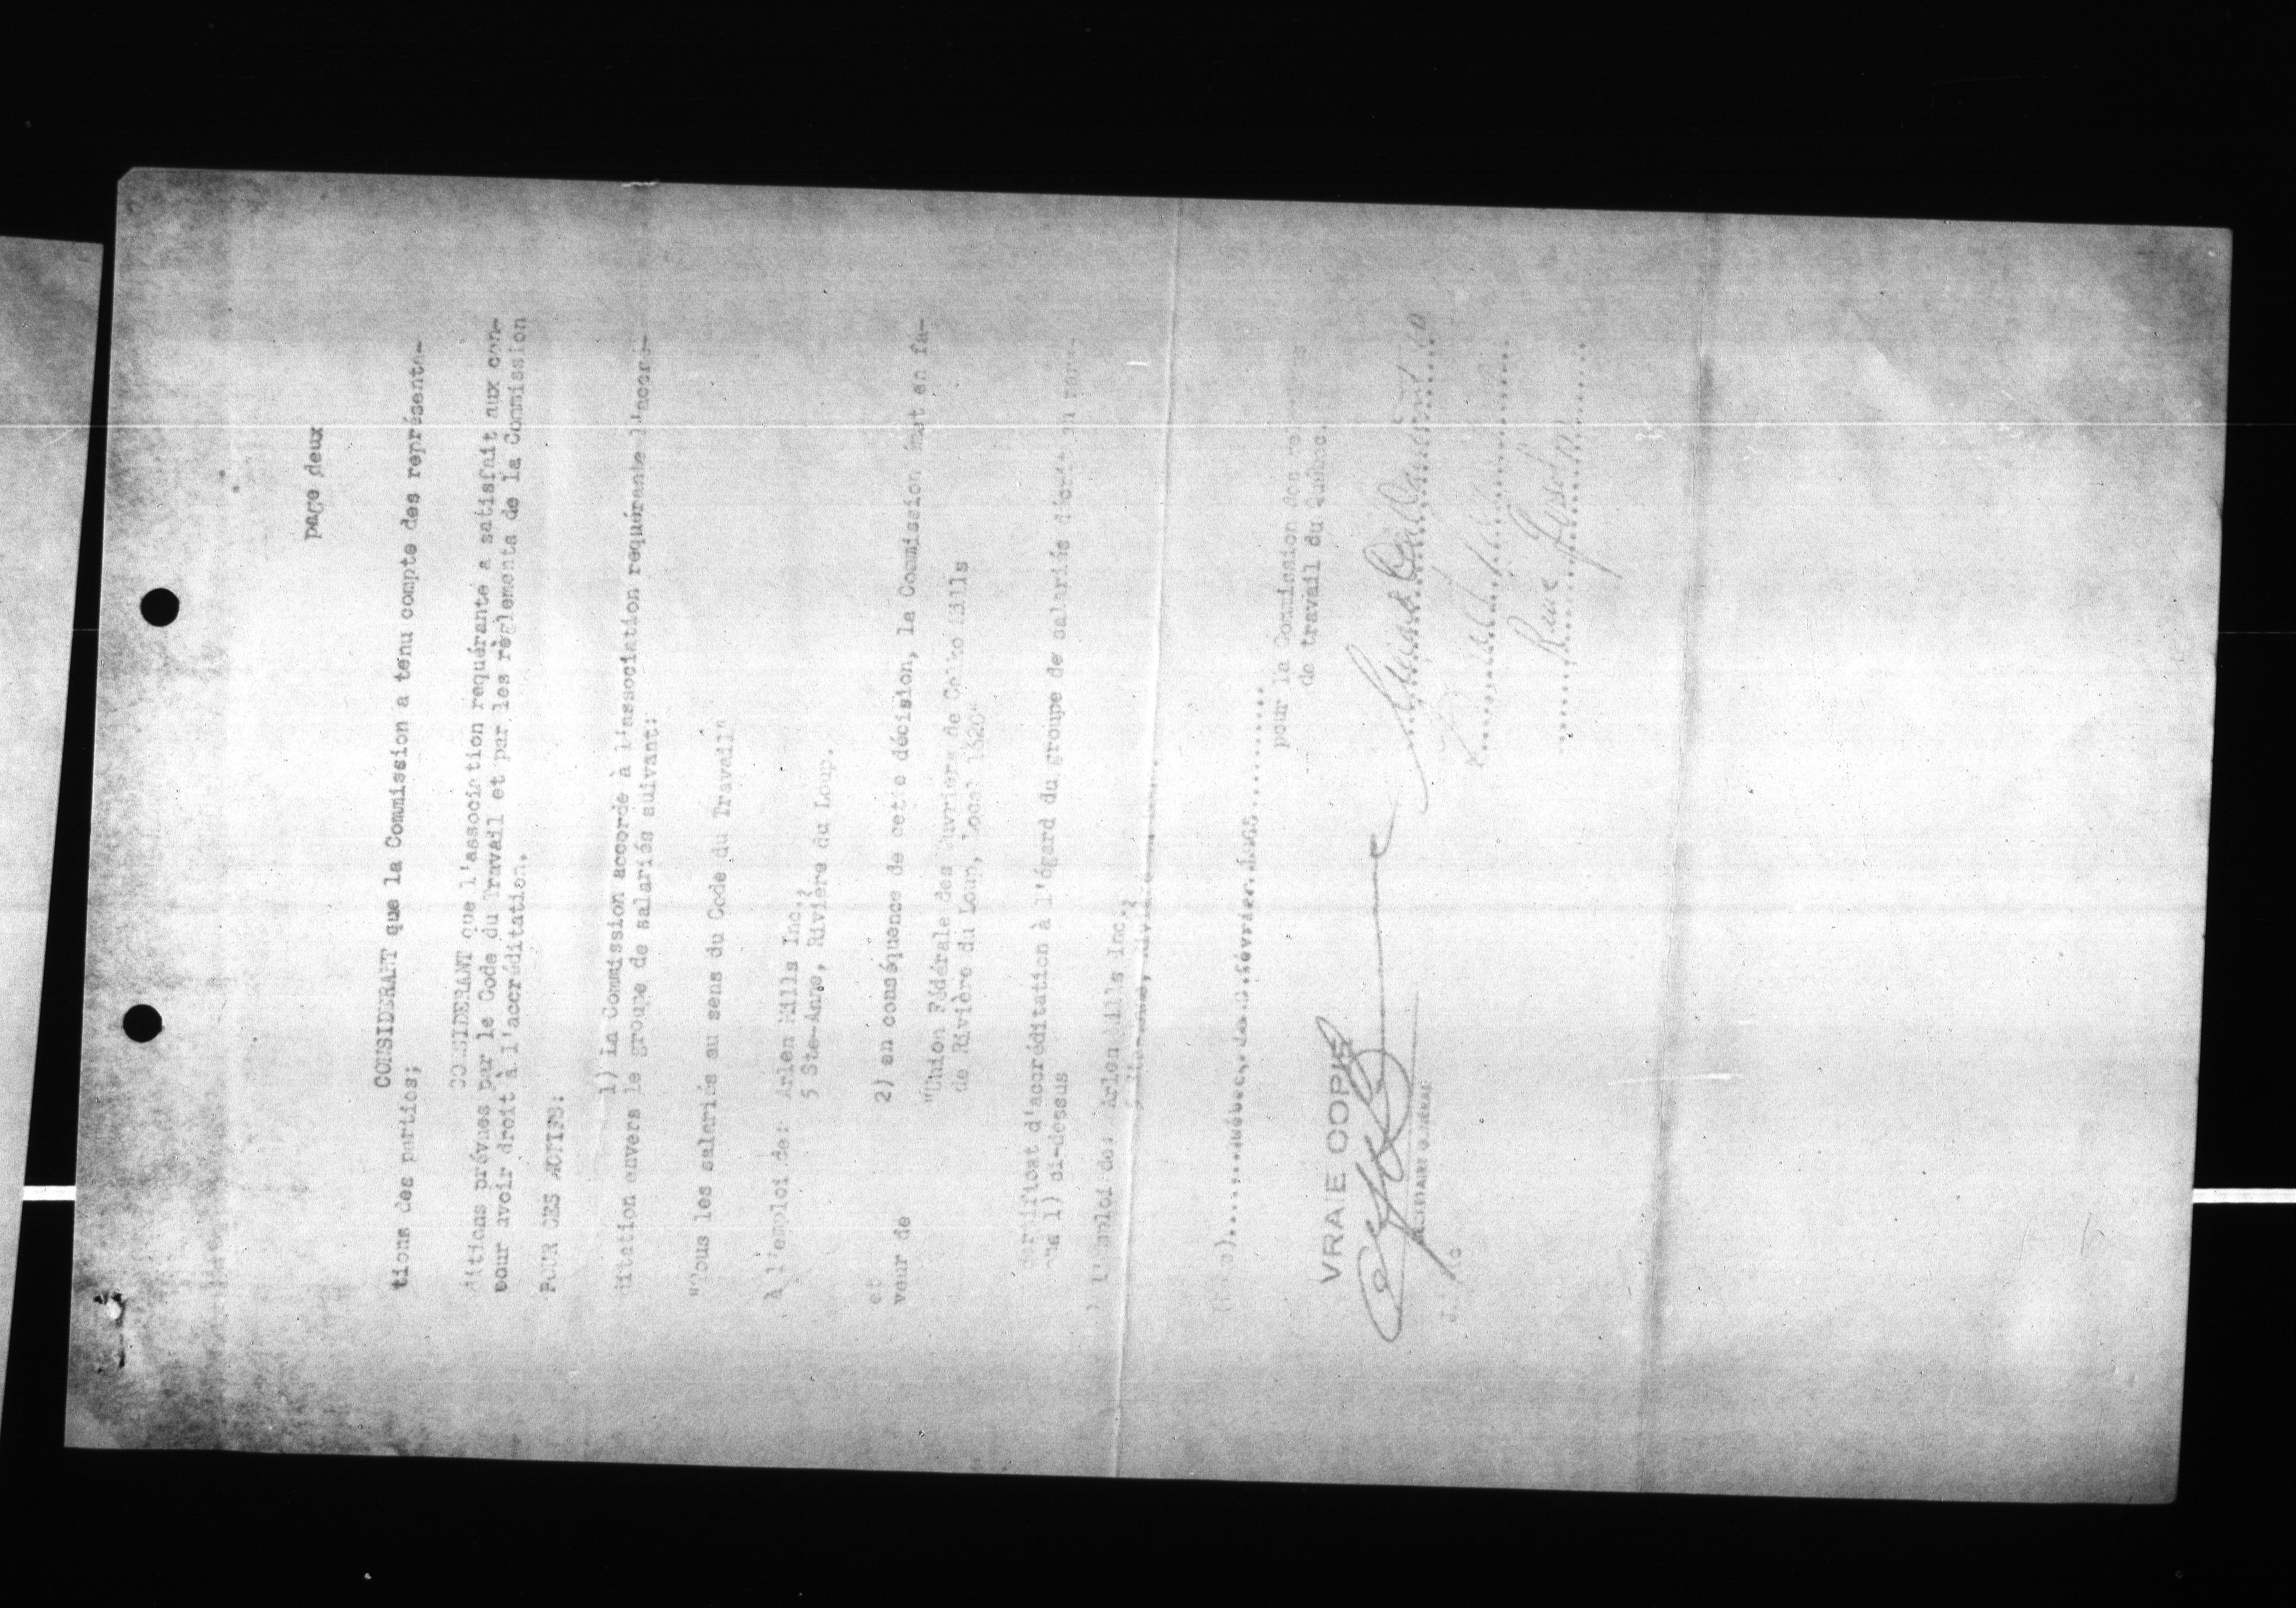 page deux
CONSIDERANT que la Commission a tenu compte des représenta-
tions des parties;
CONSIDERANT que l'association requérante a satisfait aux con-
ditions prévues par le Code du Travail et par les règlements de la Commission
pour avoir droit à l'accréditation.
POUR CES MOTIFS:
1) La Commission accorde à l'association requérante l'accré-
ditation envers le groupe de salariés suivant:
"Tous les salariés au sens du Code du Travail"
À l'emploi de: Arlen Mills Inc.,
5 Ste-Anne, Rivière du Loup.
et
2) en conséquence de cette décision, la Commission émet en fa-
veur de
"Union Fédérale des Ouvriers de Mills
de Rivière du Loup, Local 1620"
certificat d'accréditation à l'égard du groupe de salariés décrit au
1) ci-dessus
à l'emploi de: Arlen Mills Inc.,
5 Ste-Anne,
Québec, février 1965
pour la Commission des
de travail du Québec.
VRAIE COPIE
SECRETAIRE GENERAL